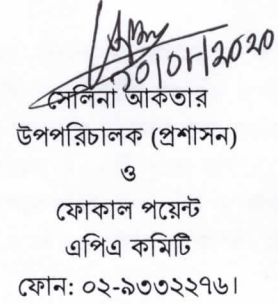 ২০/০১/২০২০
সেলিনা আকতার
উপপরিচালক (প্রশাসন)
ও
ফোকাল পয়েন্ট
এপিএ কমিটি
ফোন: ০২-৯৩৩২২৭৬।